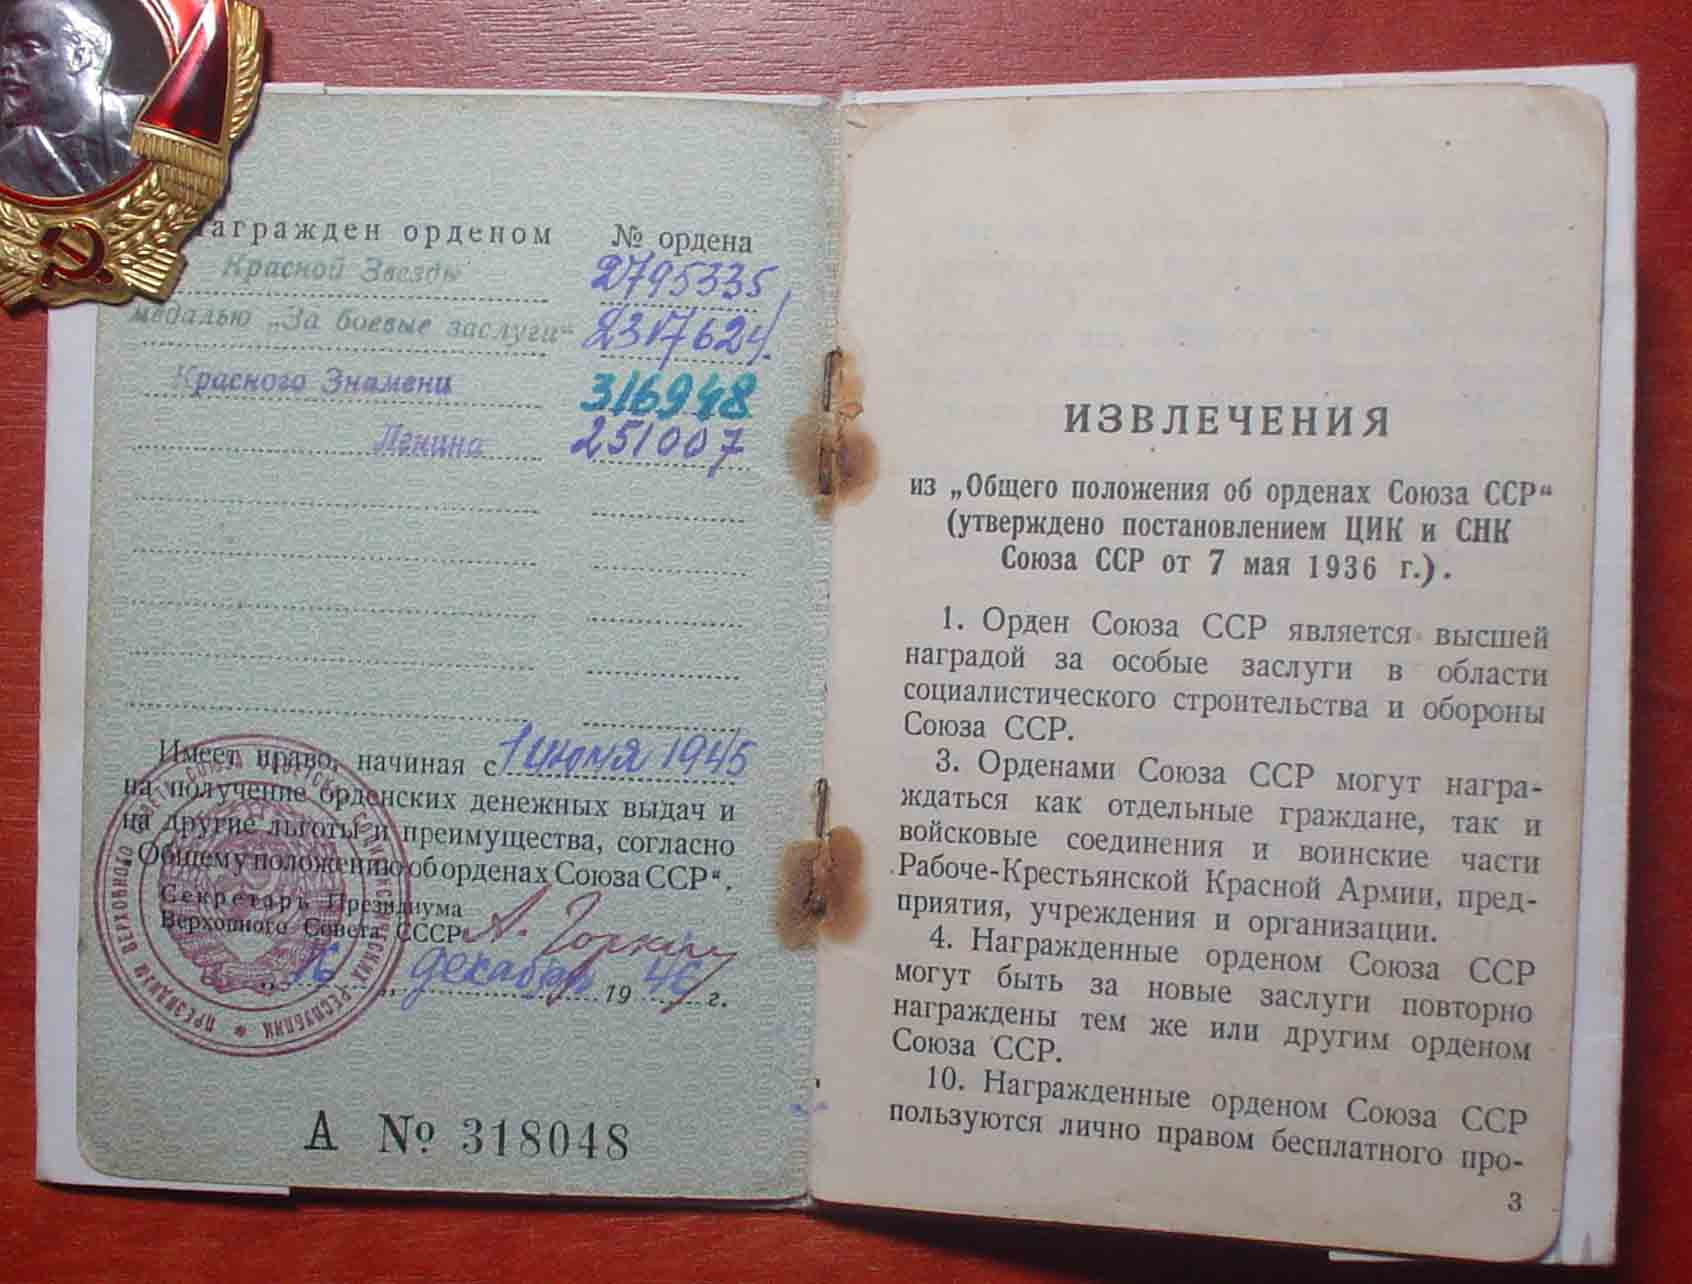 Награжден орденом № ордена
Красной Звезды 2795335
медалью „За боевые заслуги“ 2317624
Красного Знамени 316948
Ленина 251007
Имеет право, начиная с 1 июля 1945
на получение орденских денежных выдач и
на другие льготы и преимущества, согласно
„Общему положению об орденах Союза ССР“.
Секретарь Президиума
Верховного Совета СССР А. Горкин
„16„ декабря 1946 г.
ПРЕЗИДИУМ ВЕРХОВНОГО СОВЕТА СОЮЗА СОВЕТСКИХ СОЦИАЛИСТИЧЕСКИХ РЕСПУБЛИК
А № 318048
ИЗВЛЕЧЕНИЯ
из „Общего положения об орденах Союза ССР“
(утверждено постановлением ЦИК и СНК
Союза ССР от 7 мая 1936 г.).
1. Орден Союза ССР является высшей
наградой за особые заслуги в области
социалистического строительства и обороны
Союза ССР.
3. Орденами Союза ССР могут награ-
ждаться как отдельные граждане, так и
войсковые соединения и воинские части
Рабоче-Крестьянской Красной Армии, пред-
приятия, учреждения и организации.
4. Награжденные орденом Союза ССР
могут быть за новые заслуги повторно
награждены тем же или другим орденом
Союза ССР.
10. Награжденные орденом Союза ССР
пользуются лично правом бесплатного про-
3